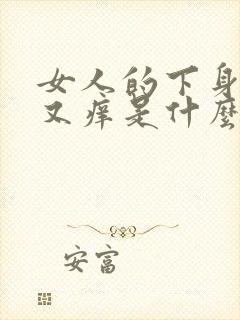 女人的下身
又痒是什麼
安富